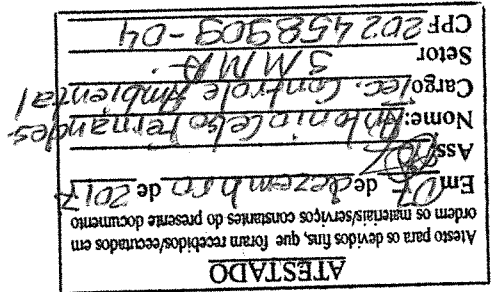 ATESTADO
Atesto para os devidos fins, que foram recebidos/executados em
ordem os materiais/serviços constantes do presente documento
Em 07 de dezembro de 2017
Ass
Nome: Antonio Celso Fernandes
Cargo Tec. Controle Ambiental
Setor SMMA.
CPF 202458909-04